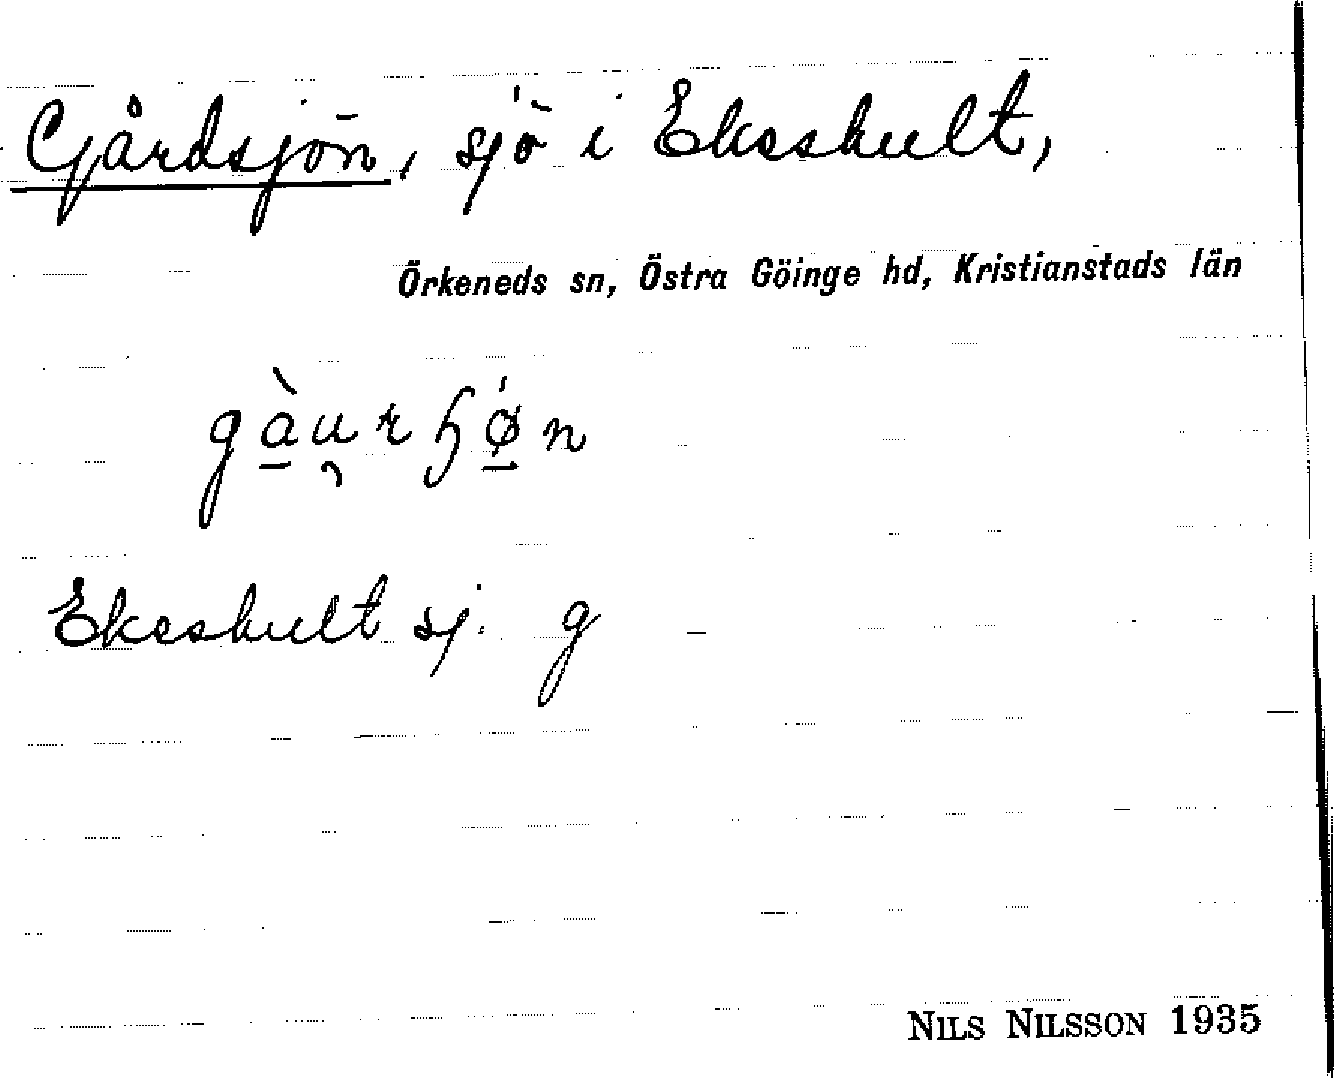 Gårdsjön, sjö i Ekeshult,
Örkeneds sn, Östra Göinge hd, Kristianstads län
Ekeshult sj. g
NILS NILSSON 1935